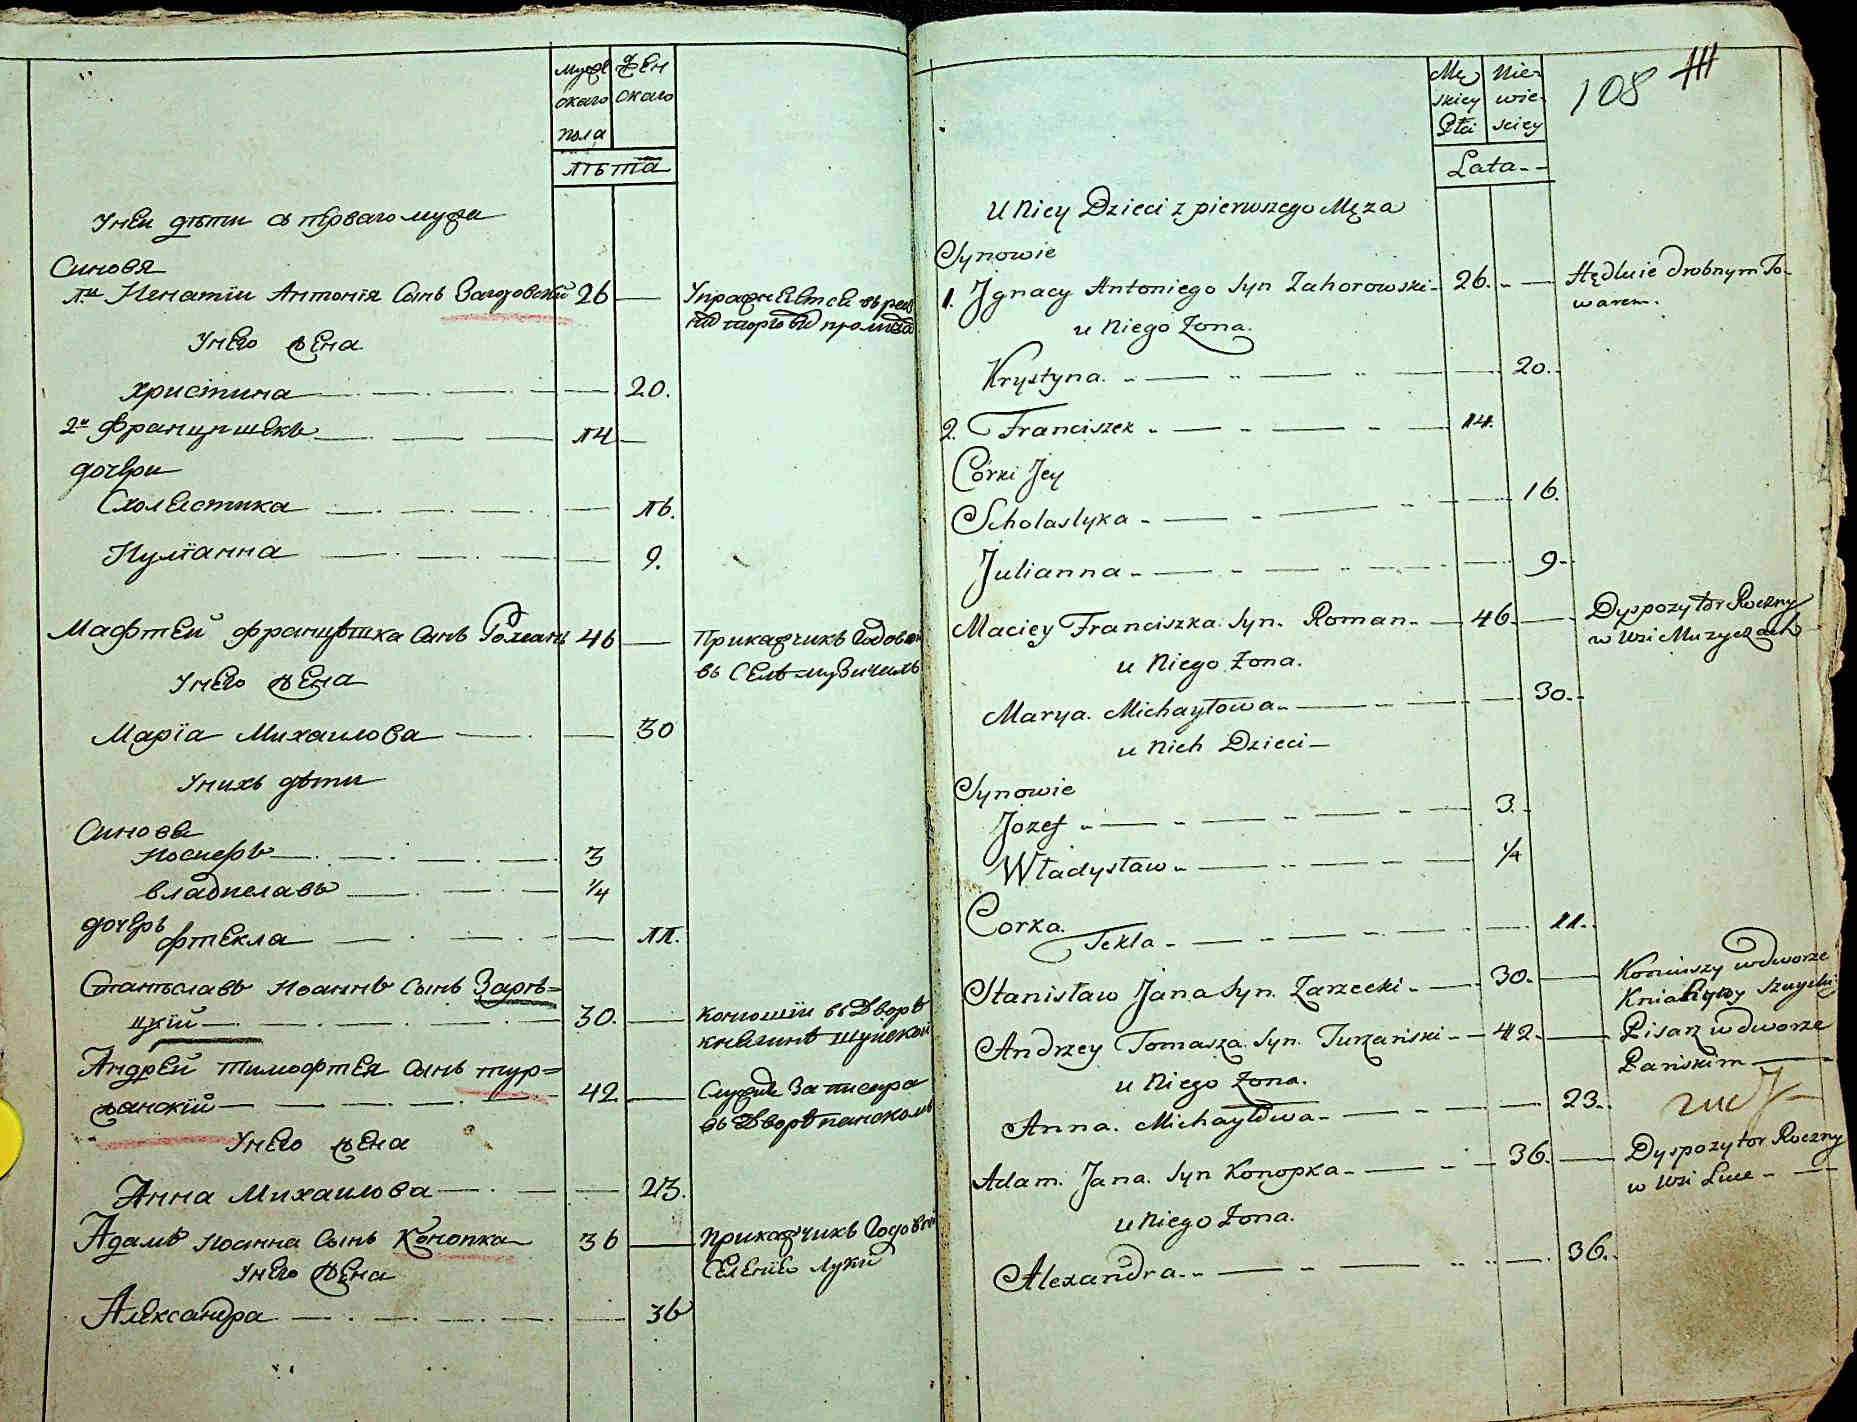 Муже Жен
скаго скаго
пола
лѣта
У неи дѣти с перваго мужа
Синовя
Игнатiи Антонiя Сынъ Загоровскiй 26
У него жена
Христина 20.
2й Францишекъ 14
дочери
Схоластика 16.
Иулiанна 9.
Матфей Францѣшка Сынъ Романъ 46 Прикажчикъ Годовой
в Селѣ Музичахъ
У него жена
Марiа Михаилова 30
У нихъ дѣти
Синовя
Иосиефъ 3
владиславъ 1/4
дочерь
фтекла 11.
Станѣславъ Иоаннъ Сынъ Зарѣ=
цкiй 30. Конюшiи в Дворѣ
княгинѣ Шуйской
Андрей Тимофтея Сынъ тур=
жанскiй 42 Служи За писара
въ Дворѣ панскомъ
У него жена
Анна Михаилова 23.
Адамъ Иоанна Сынъ Конопка 36 Прикажчикъ Годовый
Селенiе Луки
У него жена
Александра 36
Mę Nie-
skiey wie-
Płci sciey
108
Lata
U Niey Dzieci z pierwszego Męża
Synowie
1. Jgnacy Antoniego Syn Zahorowski 26. Hędluie drobnym To-
warem.
u Niego Żona.
Krystyna. 20.
2. Franciszek 14.
Córki Jey
Scholastyka 16.
Julianna 9
Maciey Franciszka Syn. Roman 46 Dyspozytor Roczny
w Wsi Muzyczach
u Niego Żona.
Marya. Michayłowa 30
u Nich Dzieci
Synowie
Jozef 3.
Władysław 1/4
Corka.
Tekla 11.
Stanisław Jana Syn. Zarzecki 30. Koniuszy w dworze
Kniahyny Szuyski
Andrzey Tomasza Syn. Turzański 42 Pisarz w dworze
Pańskim
u Niego Żona.
Anna. Michayłowa 23.
Adam. Jana. Syn Konopka 36. Dyspozytor Roczny
w Wsi Luce
u Niego Żona.
Alexandra 36.